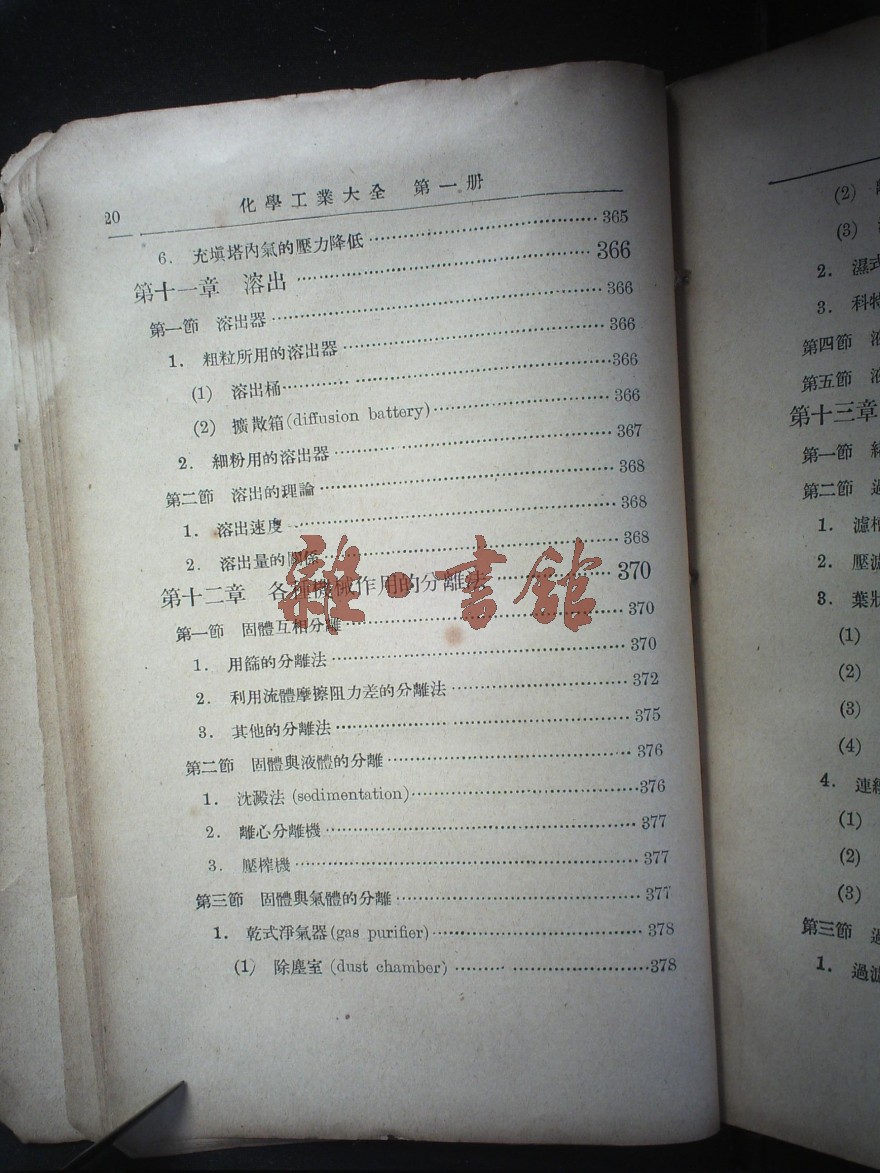 20 化學工業大全 第一册
6. 充塡塔內氣的壓力降低……365
第十一章 溶出……366
第一節 溶出器……366
1. 粗粒所用的溶出器……366
(1) 溶出桶……366
(2) 擴散箱(diffusion battery)……366
2. 細粉用的溶出器……367
第二節 溶出的理論……368
1. 溶出速度……368
2. 溶出量的關係……368
第十二章 各種機械作用的分離法……370
第一節 固體互相分離……370
1. 用篩的分離法……370
2. 利用流體摩擦阻力差的分離法……372
3. 其他的分離法……375
第二節 固體與液體的分離……376
1. 沈澱法 (sedimentation)……376
2. 離心分離機……377
3. 壓榨機……377
第三節 固體與氣體的分離……377
1. 乾式淨氣器(gas purifier)……378
(1) 除塵室(dust chamber)……378
雜·書館
(2)
(3)
2. 濕式
3. 科特
第四節
第五節
第十三章
第一節
第二節
1. 濾槽
2. 壓濾
3. 葉狀
(1)
(2)
(3)
(4)
4. 連續
(1)
(2)
(3)
第三節
1. 過濾